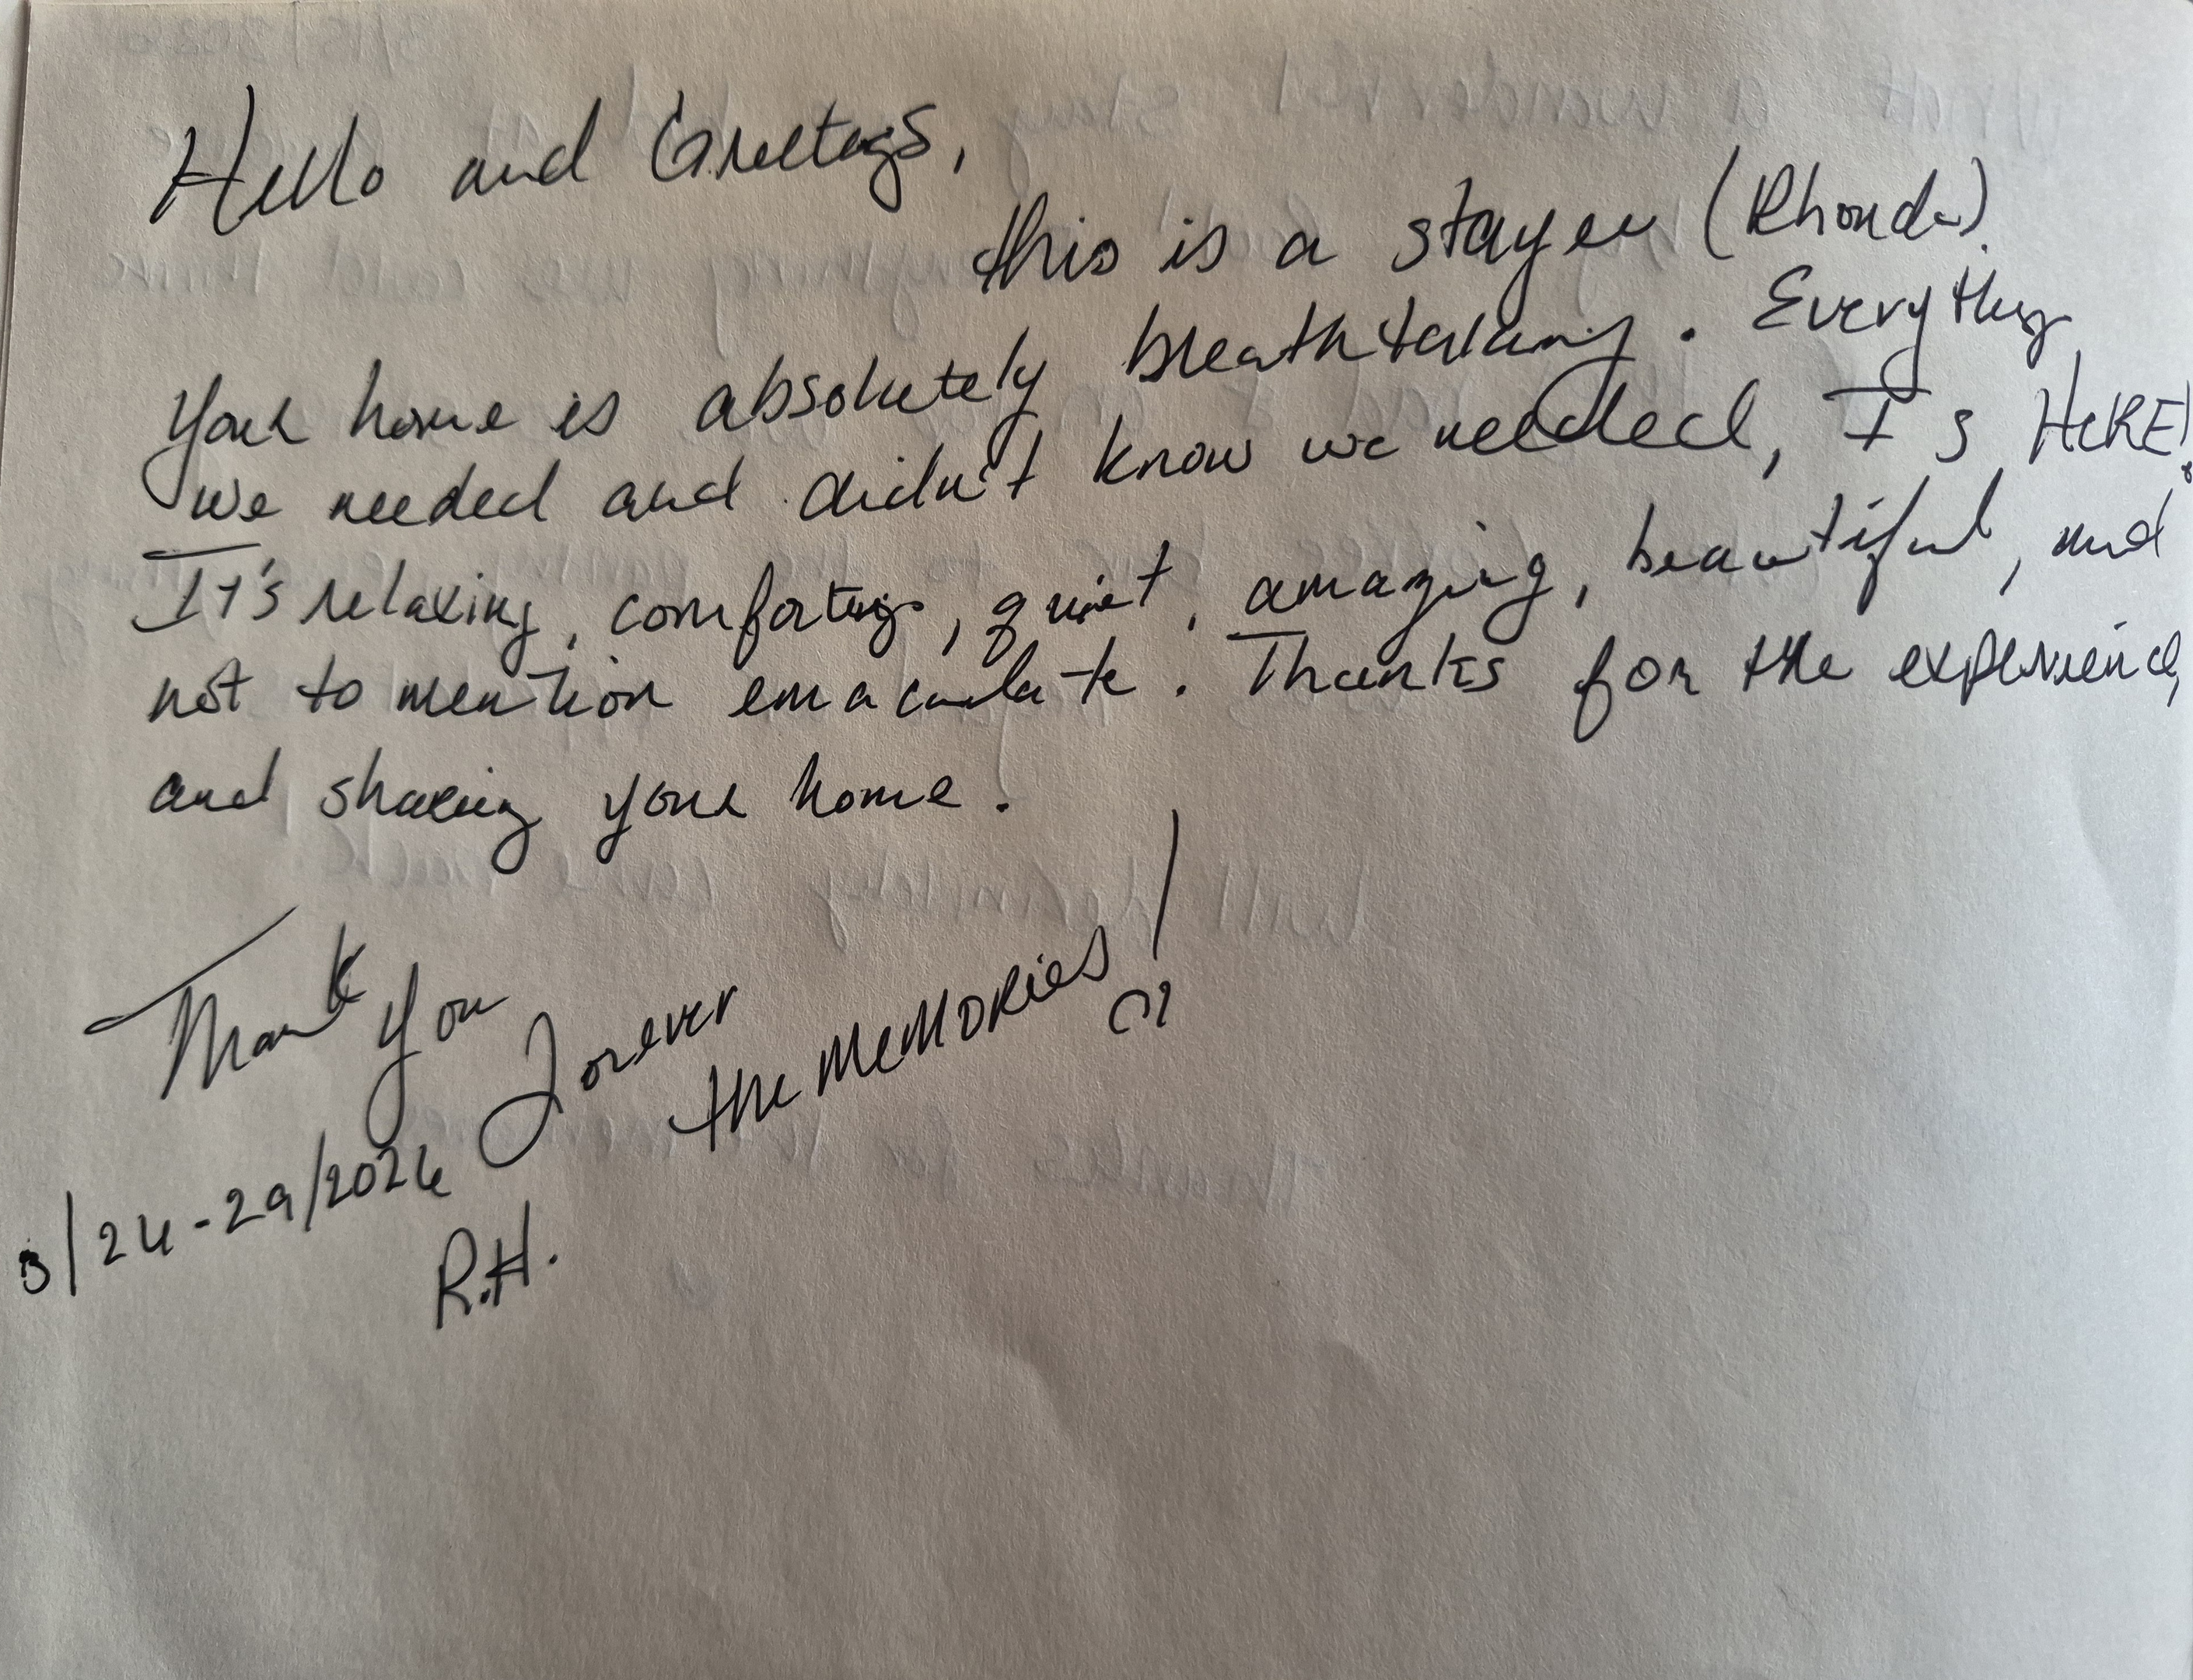 Hello and Greetings,
this is a stayer (Rhonda).
Your home is absolutely breathtaking. Everything
we needed and didn't know we needed, Is HERE!
It's relaxing, comforting, quiet, amazing, beautiful, and
not to mention emaculate. Thanks for the experience,
and sharing your home.
Thank you Forever
the MEMORIES!
3/24-29/2026
R.H.